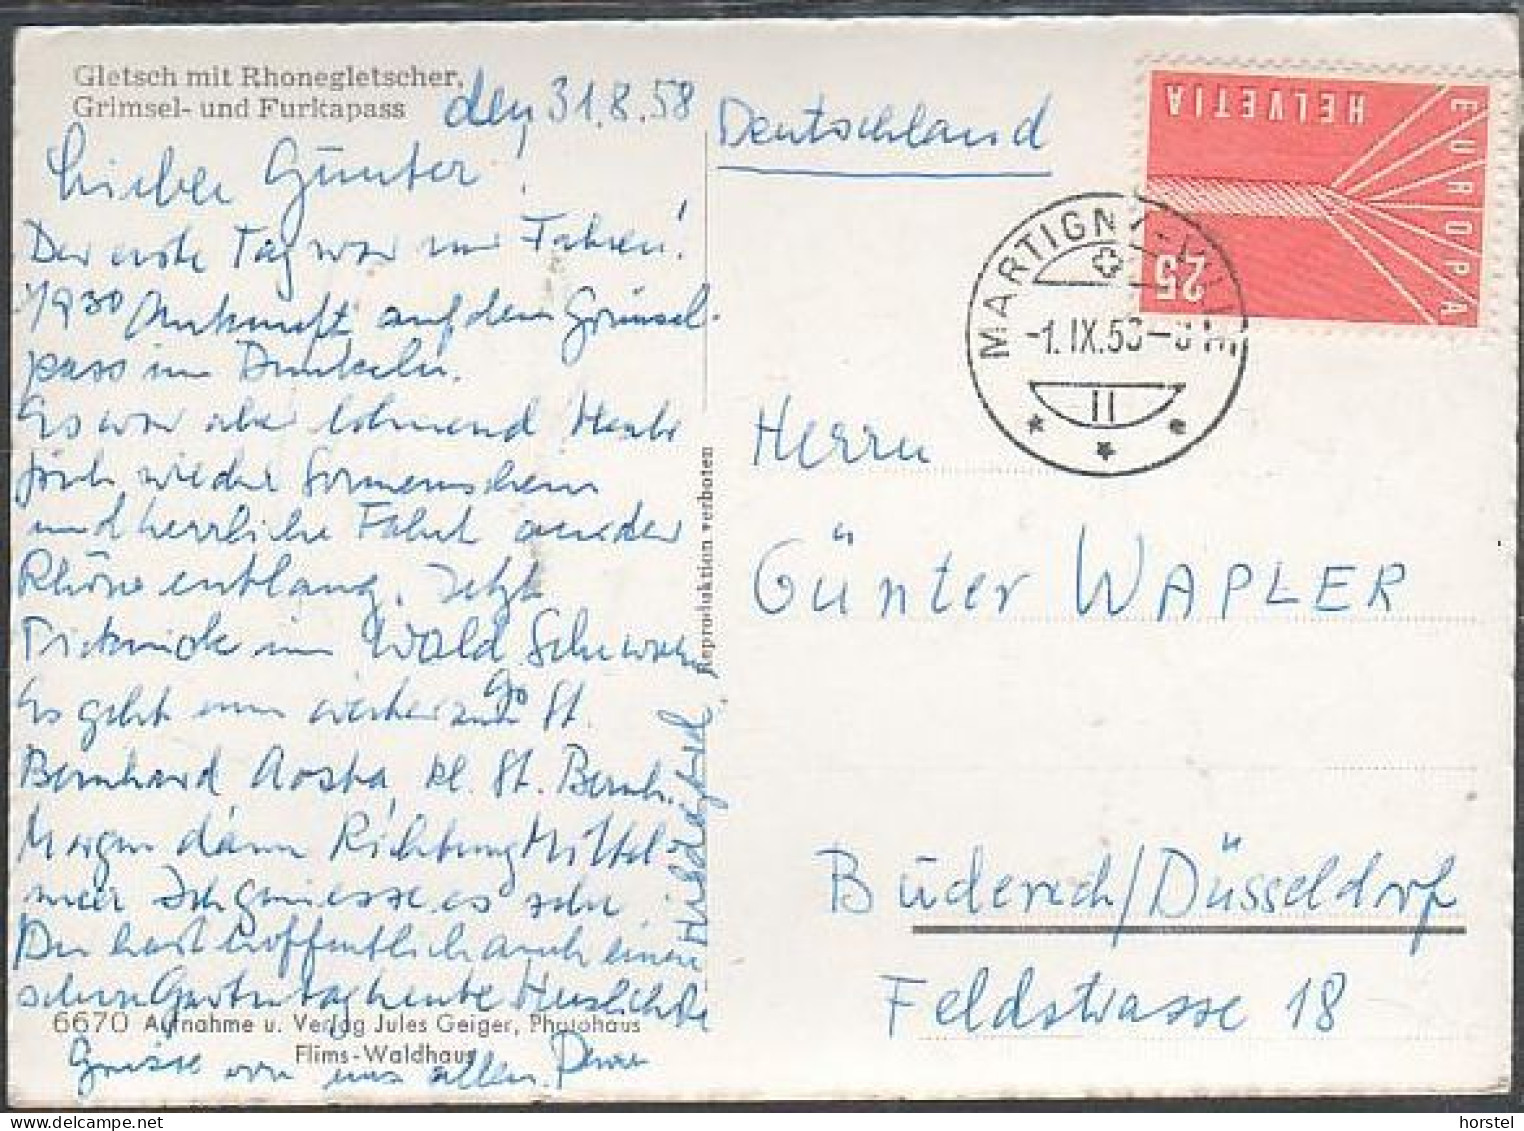 Gletsch mit Rhonegletscher,
Grimsel- und Furkapass
den 31.8.58
Lieber Günter!
Der erste Tag war nur Fahren!
1/2 9 30 Ankunft auf dem Grimsel-
pass im Dunkeln.
Es war aber lohnend Heute
früh wieder Sonnenschein
und herrliche Fahrt an der
Rhône entlang. Jetzt
Picknick im Wald.
Es geht nun weiter zum Gr. St.
Bernhard Aosta, kl. St. Bernh.
Morgen dann Richtung Mittel-
meer Ich geniesse es sehr.
Du hast hoffentlich auch einen
schönen Gartentag heute Herzlichste
Grüsse von uns allen. Deine
Hildegard
6670 Aufnahme u. Verlag Jules Geiger, Photohaus
Flims-Waldhaus
Reproduktion verboten
Deutschland
HELVETIA
EUROPA
25
MARTIGNY-VILLE
-1.IX.58
II
Herrn
Günter WAPLER
Büderich/Düsseldorf
Feldstrasse 18
horstel